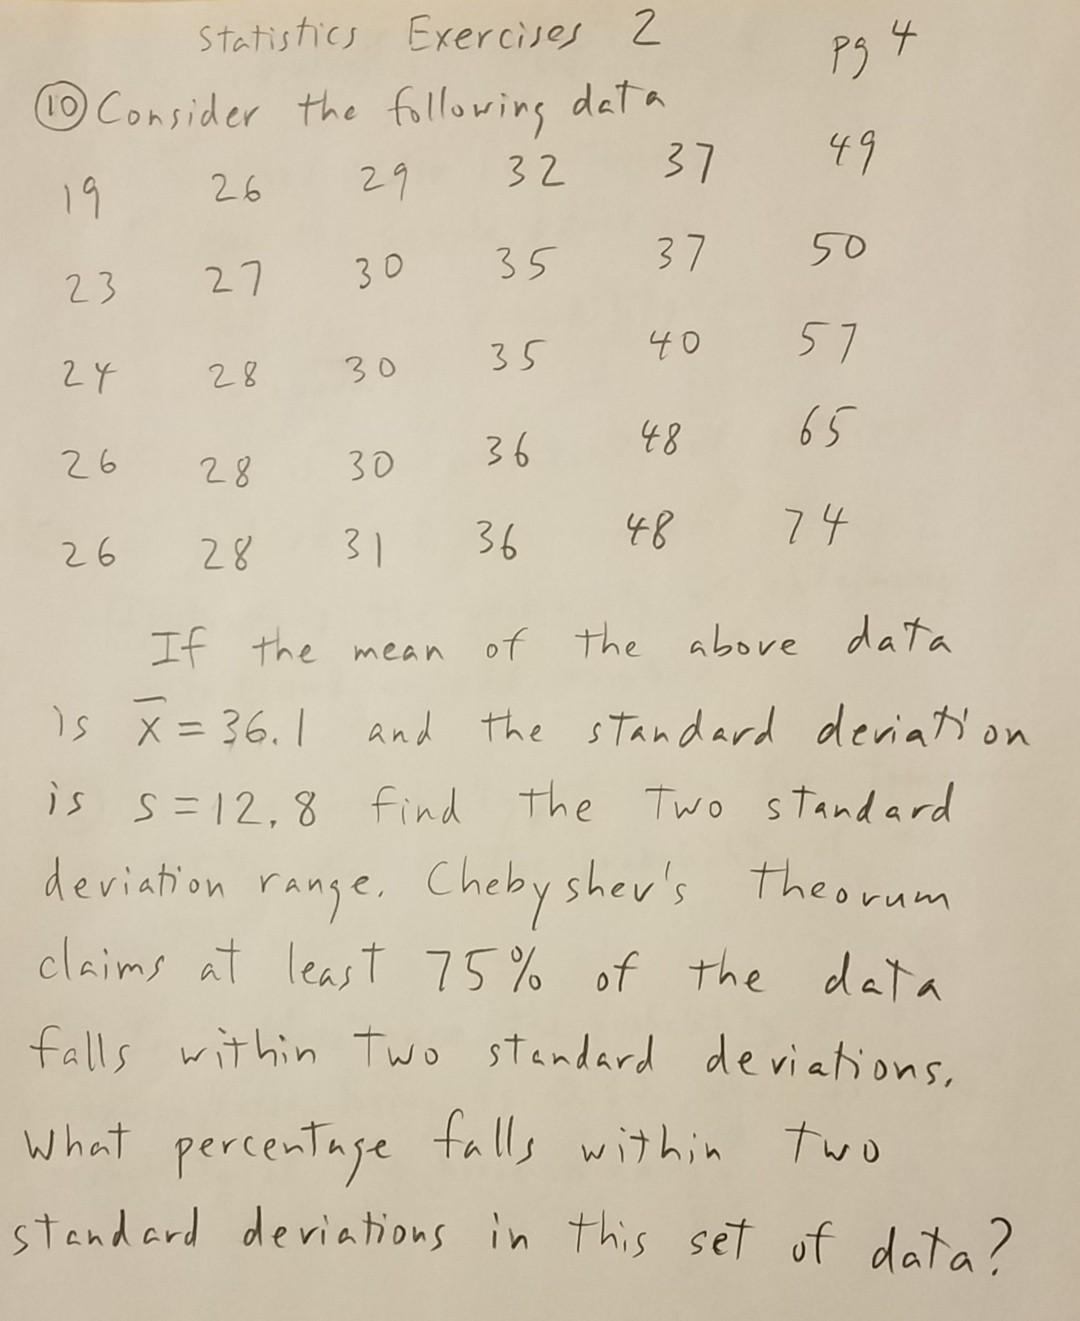 Statistics Exercises 2 pg 4
⑩ Consider the following data
19 26 29 32 37 49
23 27 30 35 37 50
24 28 30 35 40 57
26 28 30 36 48 65
26 28 31 36 48 74
If the mean of the above data
is x̄ = 36.1 and the standard deviation
is s = 12.8 find the two standard
deviation range. Chebyshev's theorum
claims at least 75% of the data
falls within two standard deviations.
What percentage falls within two
standard deviations in this set of data?